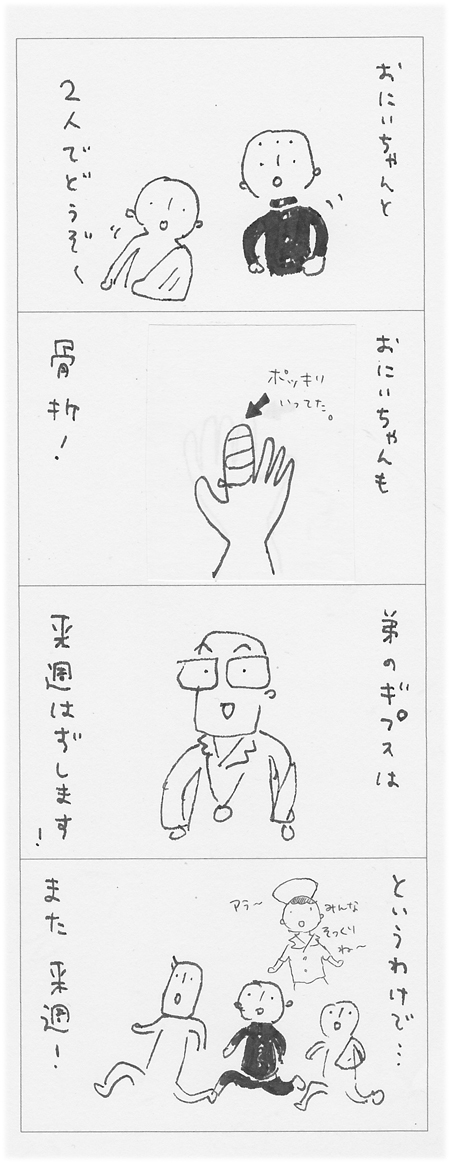 おにいちゃんと
2人でどうぞ〜
おにいちゃんも
ポッキリ
いってた。
骨折!
弟のギプスは
来週はずします!
というわけで…
みんな
そっくり
ね〜
アラ〜
また来週!